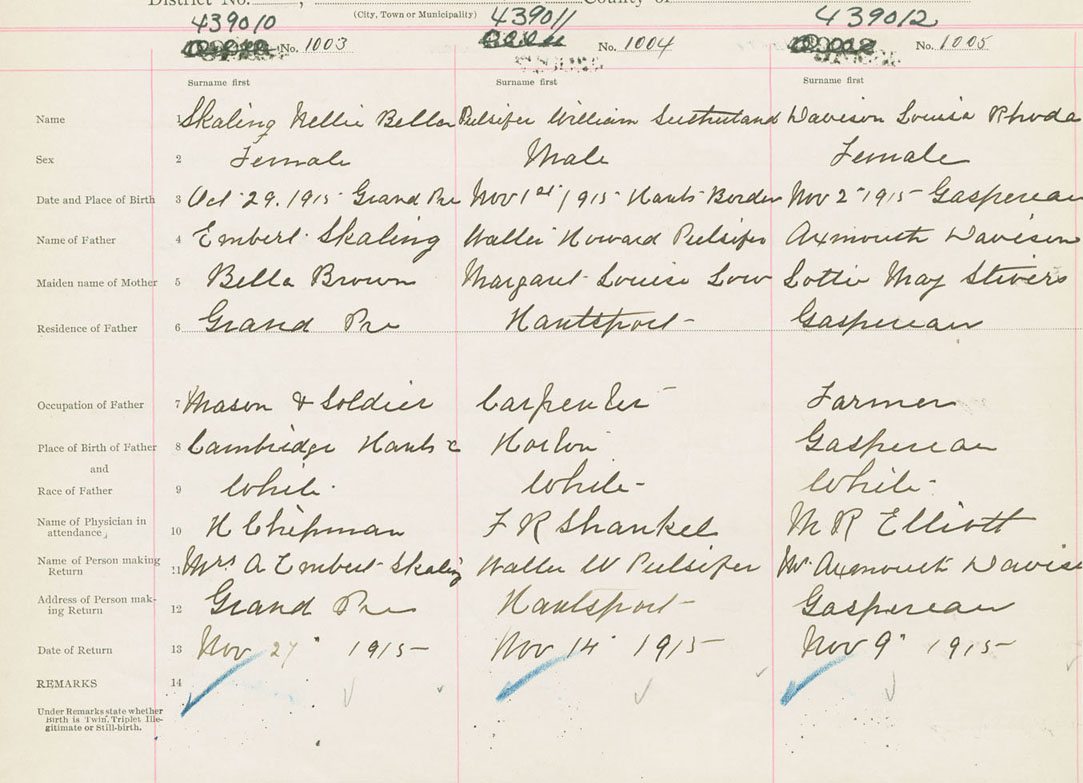 District No. , County of
(City, Town or Municipality)
439010 439011 439012
No. 1003 No. 1004 No. 1005
Surname first Surname first Surname first
Name 1 Skaling Nellie Bella Pulsifer William Sutherland Davison Louisa Rhoda
Sex 2 Female Male Female
Date and Place of Birth 3 Oct 29. 1915 Grand Pre Nov 1st 1915 Hants Border Nov 2 1915 Gaspereau
Name of Father 4 Embert Skaling Walter Howard Pulsifer Axmouth Davison
Maiden name of Mother 5 Bella Brown Margaret Louise Low Lottie May Stivers
Residence of Father 6 Grand Pre Hantsport Gaspereau
Occupation of Father 7 Mason & Soldier Carpenter Farmer
Place of Birth of Father 8 Cambridge Hants c Horton Gaspereau
and
Race of Father 9 White White White
Name of Physician in attendance, 10 H Chipman F R Shankel M R Elliott
Name of Person making Return 11 Mrs A Embert Skaling Walter W Pulsifer Mr Axmouth Davis
Address of Person making Return 12 Grand Pre Hantsport Gaspereau
Date of Return 13 Nov 27" 1915 Nov 14" 1915 Nov 9" 1915
REMARKS 14
Under Remarks state whether
Birth is Twin, Triplet Ille-
gitimate or Still-birth.